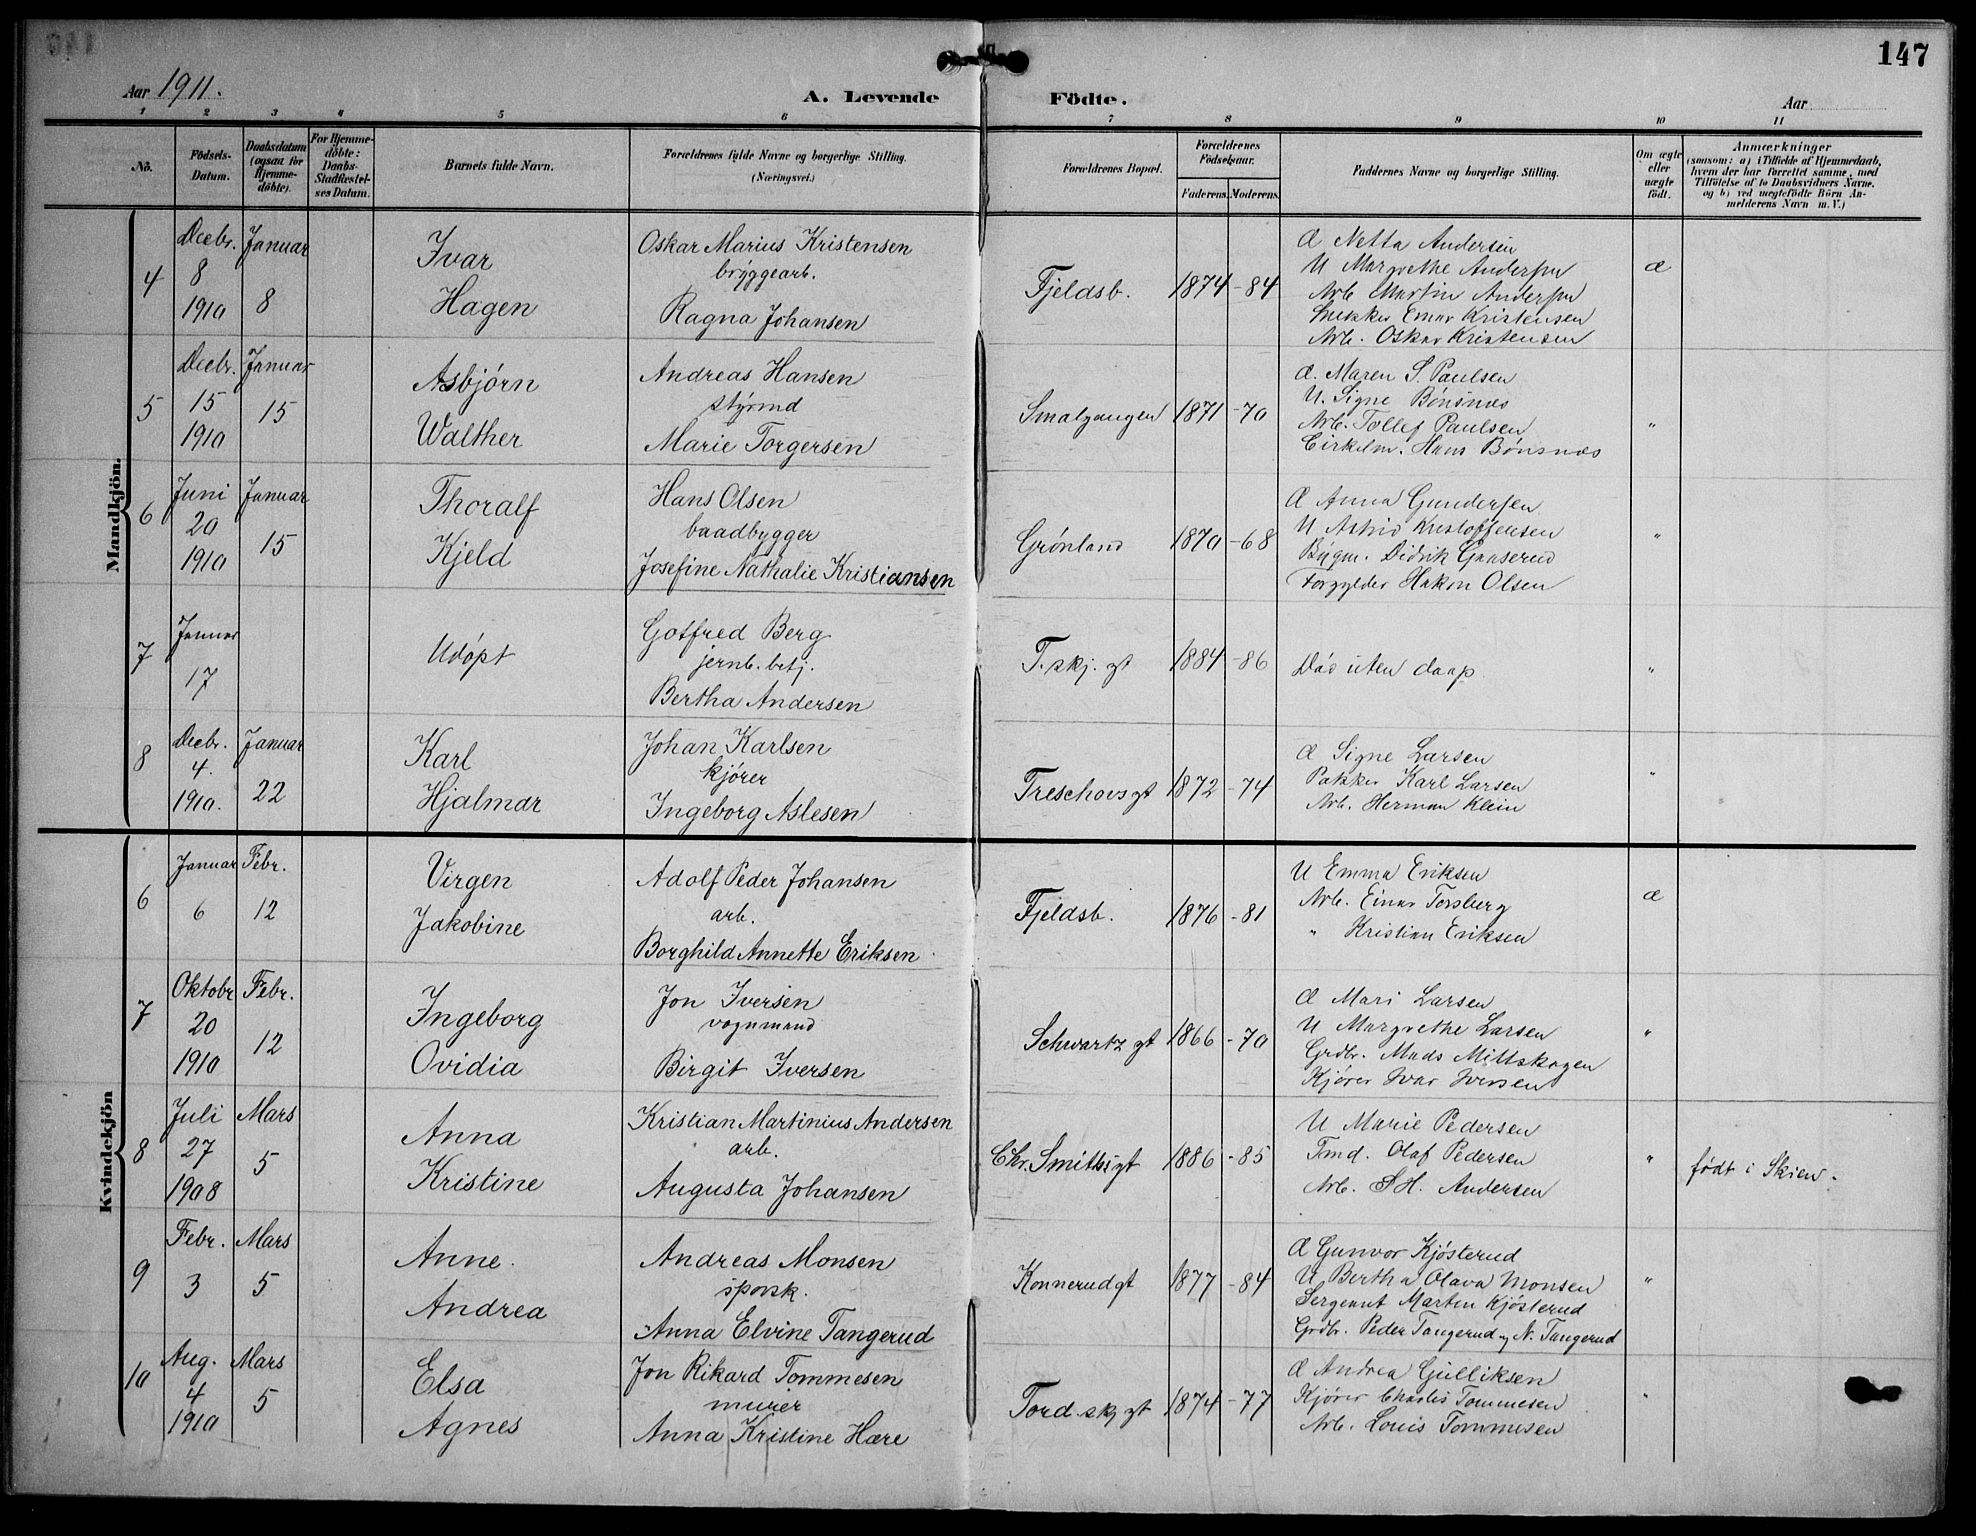 147
Aar 1911.
A. Levende Födte.
Aar
1 2 3 4 5 6 7 8 9 10 11
No.
Födsels-Datum.
Daabsdatum (ogsaa for Hjemme-döbte).
For Hjemme-döbte: Daabs-Stadfæstel-ses Datum.
Barnets fulde Navn.
Forældrenes fulde Navne og borgerlige Stilling.
(Næringsvei.)
Forældrenes Bopæl.
Forældrenes Födselsaar.
Faderens. Moderens.
Faddernes Navne og borgerlige Stilling.
Om ægte eller uægte födt.
Anmærkninger
(saasom: a) i Tilfælde af Hjemmedaab, hvem der har forrettet samme, med Tilföielse af to Daabsvidners Navne, og b) ved uægtefödte Börn An-melderens Navn m. V.)
Mandkjön.
4
Decbr. 8 1910
Januar 8
Ivar Hagen
Oskar Marius Kristensen
bryggearb.
Ragna Johansen
Fjeldsb.
1874 - 84
Æ Netta Andersen
U Margrethe Andersen
Arb. Martin Andersen
Snekker Einar Kristensen
Arb. Oskar Kristensen
æ
5
Decbr. 15 1910
Januar 15
Asbjørn Walther
Andreas Hansen
styrmd
Marie Torgersen
Smalgangen
1871 - 70
Æ. Maren S. Paulsen
U. Signe Bönsnæs
Arb. Tollef Paulsen
Cirkelm. Hans Bönsnæs
"
6
Juni 20 1910
Januar 15
Thoralf Kjeld
Hans Olsen
baadbygger
Josefine Nathalie Kristiansen
Grönland
1870 - 68
Æ Anna Gundersen
U Astrid Kristoffersen
Bygm. Didrik Gaaserud
Forgylder Hakon Olsen
"
7
Januar 17
Udöpt
Gotfred Berg
jernb. betj.
Bertha Andersen
T. skj. gt
1884 - 86
Död uten daap
"
8
Decbr. 4. 1910.
Januar 22
Karl Hjalmar
Johan Karlsen
kjörer
Ingeborg Aslesen
Treschovs gt
1872 - 74
Æ Signe Larsen
Pakker Karl Larsen
Arb. Herman Klein
"
Kvindekjön
6
Januar 6
Febr. 12
Virgen Jakobine
Adolf Peder Johansen
arb.
Borghild Annette Eriksen
Fjeldsb.
1876 - 81
U Emma Eriksen
Arb. Einar Torsberg
" Kristian Eriksen
æ
7
Oktobr 20 1910
Febr. 12
Ingeborg Ovidia
Jon Iversen
vognmand
Birgit Iversen
Schwartz gt
1866 - 70
Æ Mari Larsen
U Margrethe Larsen
Grdbr. Mads Mittskogen
Kjörer Ivar Iversen
"
8
Juli 27 1908
Mars 5
Anna Kristine
Kristian Martinius Andersen
arb.
Augusta Johansen
Chr. Smiths gt
1886 - 85
U Marie Pedersen
Tmd. Olaf Pedersen
Arb. S H. Andersen
"
født i Skien.
9
Febr. 3
Mars 5
Anne. Andrea
Andreas Monsen
sporsk.
Anna Elvine Tangerud
Konnerud gt
1877 - 84
Æ Gunvor Kjösterud
U Bertha Olava Monsen
Sergeant Martin Kjösterud
Grdbr. Peder Tangerud og N. Tangerud
"
10
Aug. 4 1910
Mars 5
Elsa Agnes
Jon Rikard Tommesen
murer
Anna Kristine Hære
Tord. skj gt
1874 - 77
Æ Andrea Gulliksen
Kjörer Charles Tommesen
Arb. Louis Tommesen
"